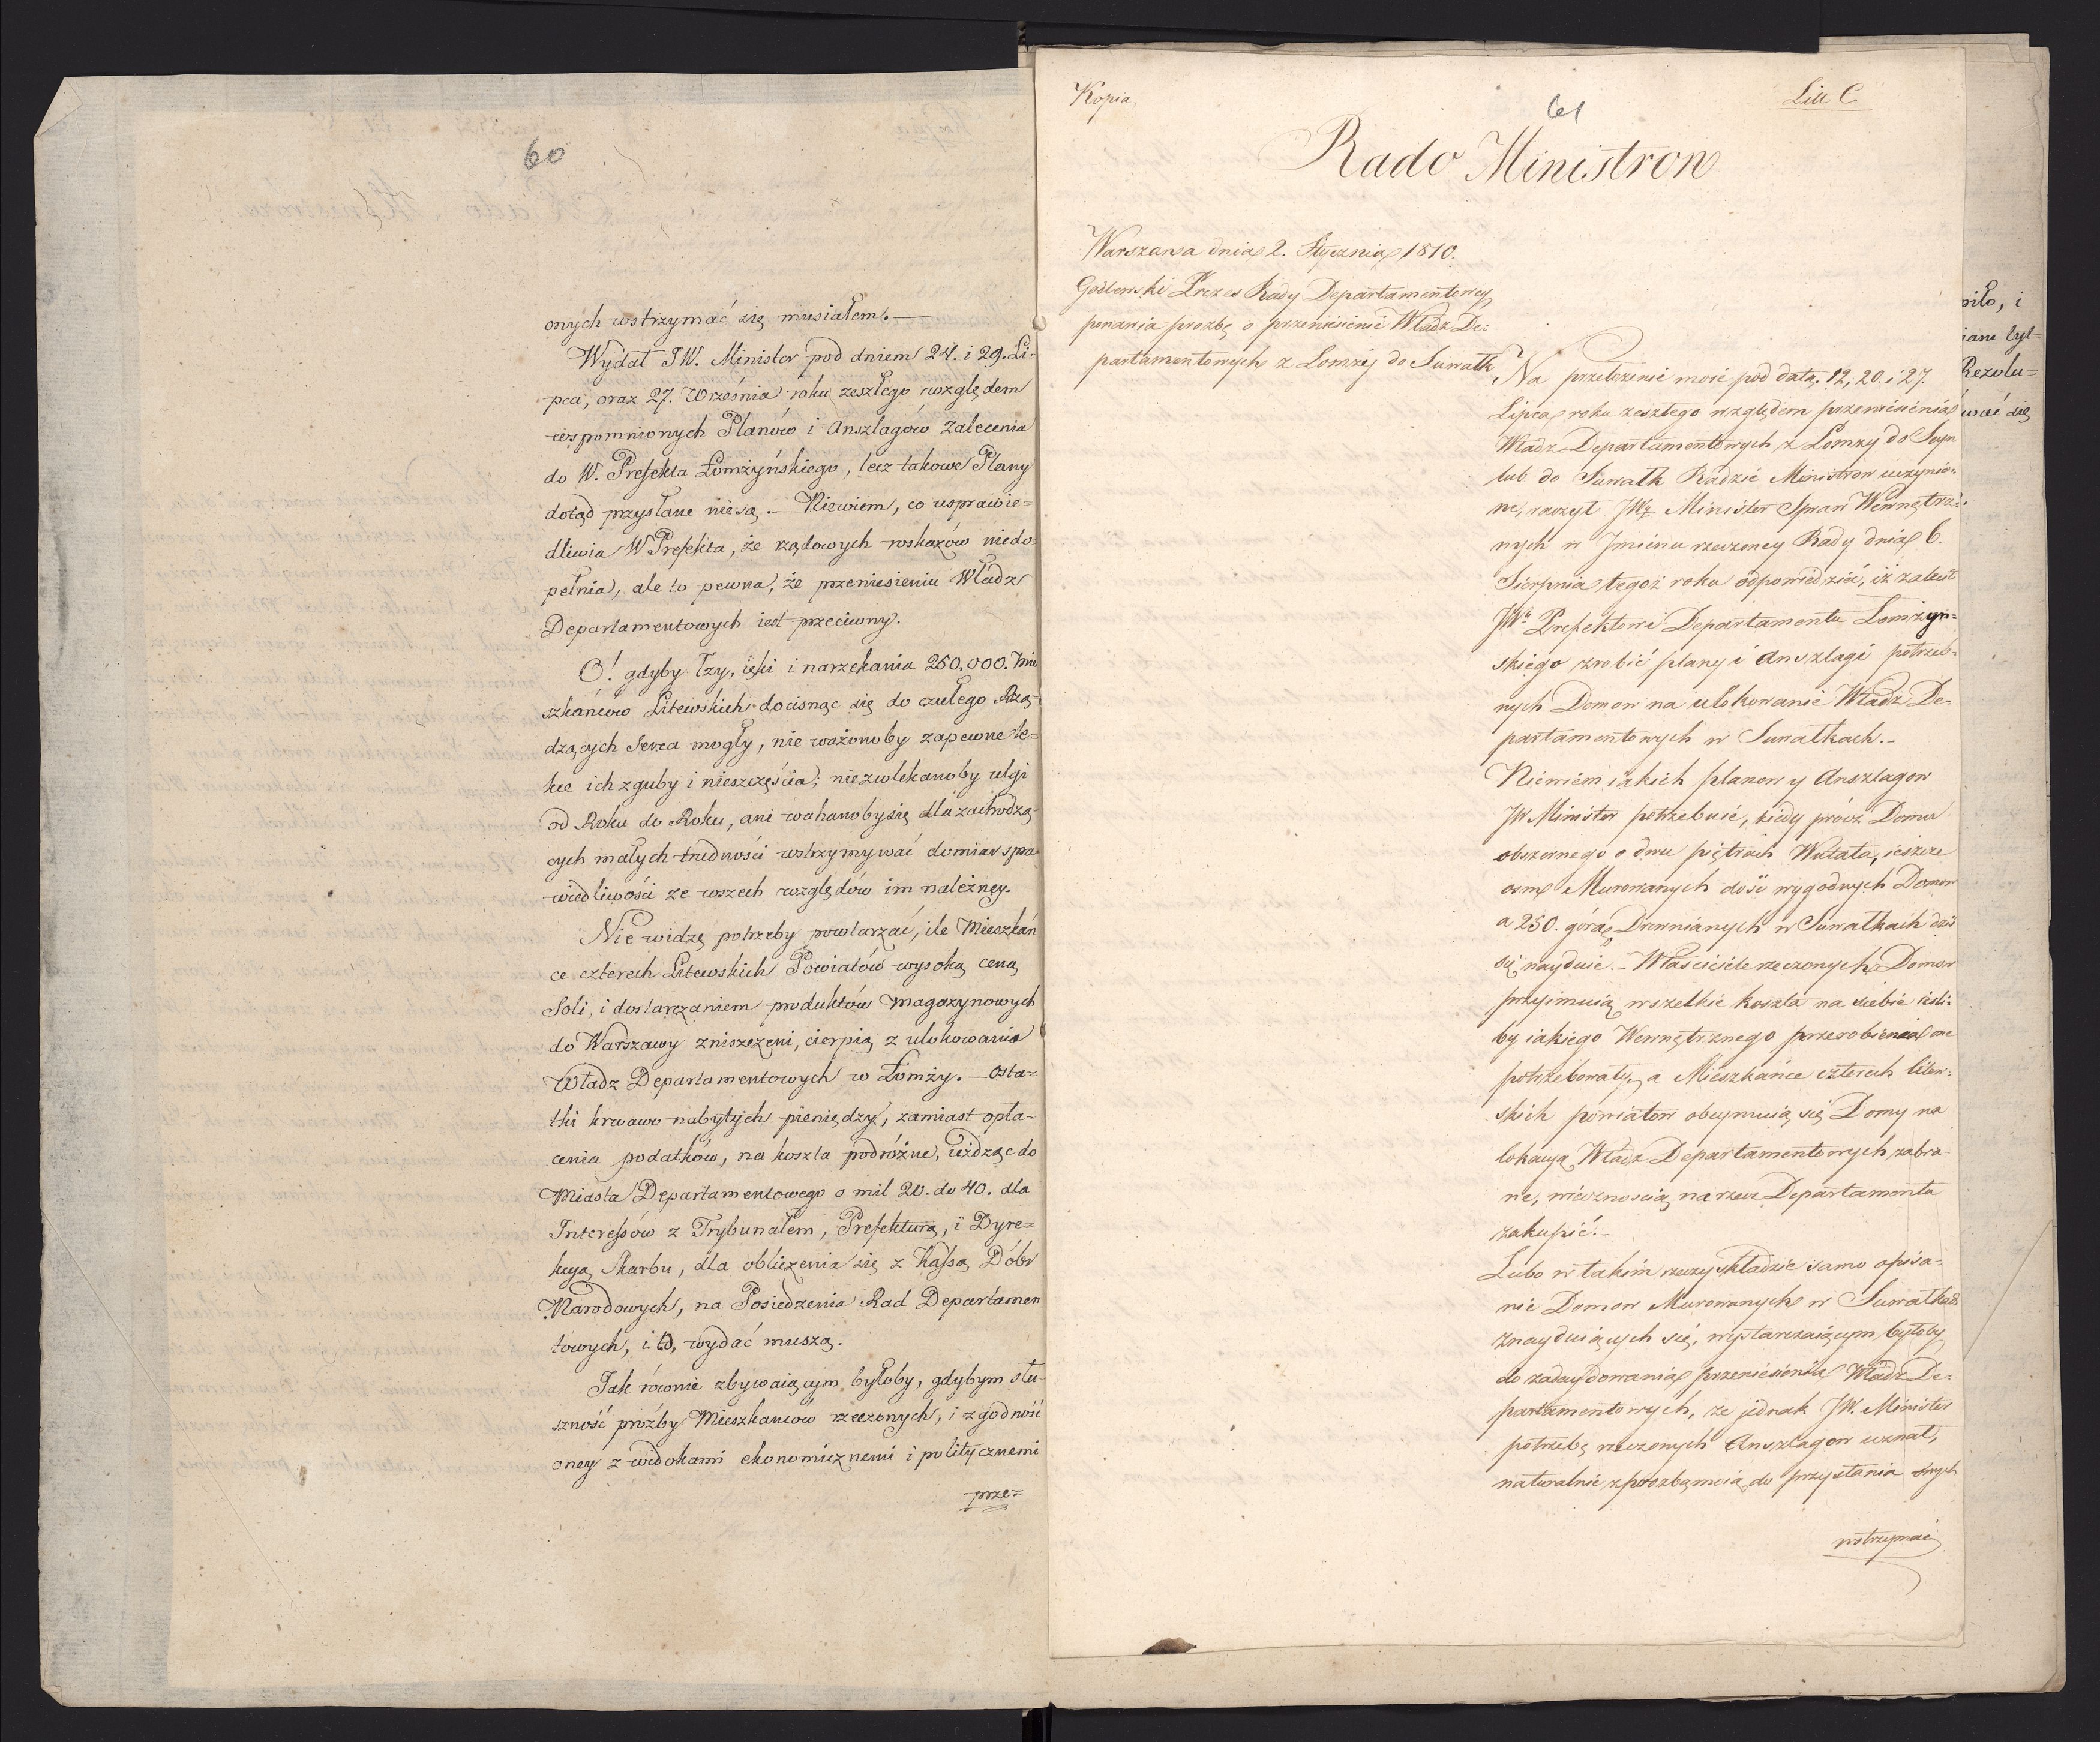 60
onych wstrzymać się musiałem. —
Wydał JW. Minister pod dniem 24. i 29. Li-
pca, oraz 27. Września roku zeszłego względem
wspomnionych Planów i Anszlagów Zalecenia
do W. Prefekta Łomżyńskiego, lecz takowe Plany
dotąd przysłane nie są. — Niewiem, co usprawie=
dliwia W Prefekta, że rządowych roskazów niedo-
pełnia, ale to pewna, że przeniesieniu Władz
Departamentowych iest przeciwny.
O! gdyby łzy, ięki i narzekania 250,000. Mie
szkańców Litewskich docisnąc się do czułego Rzą-
dzących Serca mogły, nie ważonoby zapewne le=
kce ich zguby i nieszczęścia; niezwlekanoby ulgi
od Roku do Roku, ani wahanoby się dla zachodzą-
cych małych trudności wstrzymywać domiar spra
wiedliwości ze wszech względów im należney.
Nie widzę potrzeby powtarzać, ile Mieszkań
ce czterech Litewskich Powiatów wysoką ceną
Soli, i dostarczaniem produktów magazynowych
do Warszawy zniszczeni, cierpią z ulokowania
Władz Departamentowych w Łomży. — Osta=
tki krwawo nabytych pieniędzy, zamiast opła-
cenia podatków, na koszta podróżne, ieżdząc do
Miasta Departamentowego o mil 20. do 40. dla
Interessów z Trybunałem, Prefekturą, i Dyre=
kcyą Skarbu, dla obliczenia się z Kassą Dóbr
Narodowych, na Posiedzenia Rad Departamen
towych, i. td, wydać muszą.
Jak równie zbywaiącym byłoby, gdybym słu
szność proźby Mieszkanców rzeczonych, i zgodność
oney z widokami ekonomicznemi i politycznemi
prze=
Kopia
61
Litt C.
Rado Ministrow
Warszawa dnia 2. Stycznia 1810.
Godlewski Prezes Rady Departamentowey
ponawia prozbę o przeniesienie Władz De:
partamentowych z Lomży do Suwałk
Na przełożenie moie pod datą. 12, 20. i 27.
Lipca roku zeszłego względem przeniesienia
Władz Departamentowych z Lomzy do Seyn
lub do Suwałk Radzie Ministrow uczynio-
ne, raczył JWy Minister Spraw Wewnętrz:
nych w Jmieniu rzeczoney Rady dnia 6.
Sierpnia tegoż roku odpowiedzieć, iż zalecił
JWu Prefektowi Departamentu Lomżyn=
skiego zrobić plany i Anszlagi potrzeb-
nych Domow na ulokowanie Władz De-
partamentowych w Suwałkach. –
Niewiem iakich planow y Anszlagow
JW Minister potrzebuie, kiedy prócz Domu
obszernego o dwu piętrach Wutata, ieszcze
osm Murowanych dość wygodnych Domow
a 250. górą Drewnianych w Suwałkach dziś
się nayduie. – Właściciele rzeczonych Domow
przyimuią wszelkie koszta na siebie ieśli:
by iakiego Wewnętrznego przerobienia one
potrzebowały, a Mieszkańce czterech litew:
skich powiatow obeymuią się Domy na
lokacyą Władz Departamentowych zabra-
ne, wiecznoscią na rzecz Departamentu
zakupić. –
Lubo w takim rzeczy składzie samo opisa-
nie Domow Murowanych w Suwałkach
znayduiących się, wystarczaiącym byłoby
do zadecydowania przeniesienia Władz De-
partamentowych, że jednak JW. Minister
potrzebę rzeczonych Anszlagow uznał,
naturalnie do przysłania onych
wstrzymać
piło, i
iam tyl=
Rezolu=
wać się